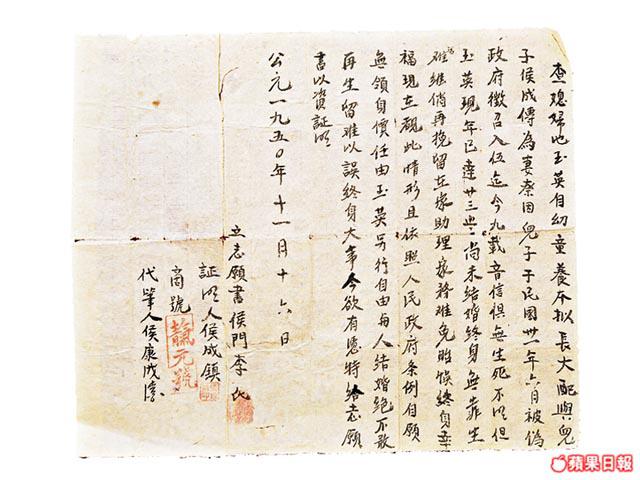 查媳婦池玉英自幼童養本拟長大配與兒
子侯成傳為妻奈因兒子于民國卅一年六月被偽
政府徵召入伍迄今九載音信俱無生死不明但
玉英現年已達廿三歲尚未結婚終身無靠生
活难維倘再挽留在家助理家務难免貽悮終身幸
福現在觀此情形且依照人民政府条例自願
無領身價任由玉英另行自由与人結婚絕不敢
再生留难以誤終身大事今欲有憑特給志願
書以資証明
公元一九五〇年十一月十六日
立志願書侯門李氏
証明人侯成鎮
商號 元號
代筆人侯康成
蘋果日報